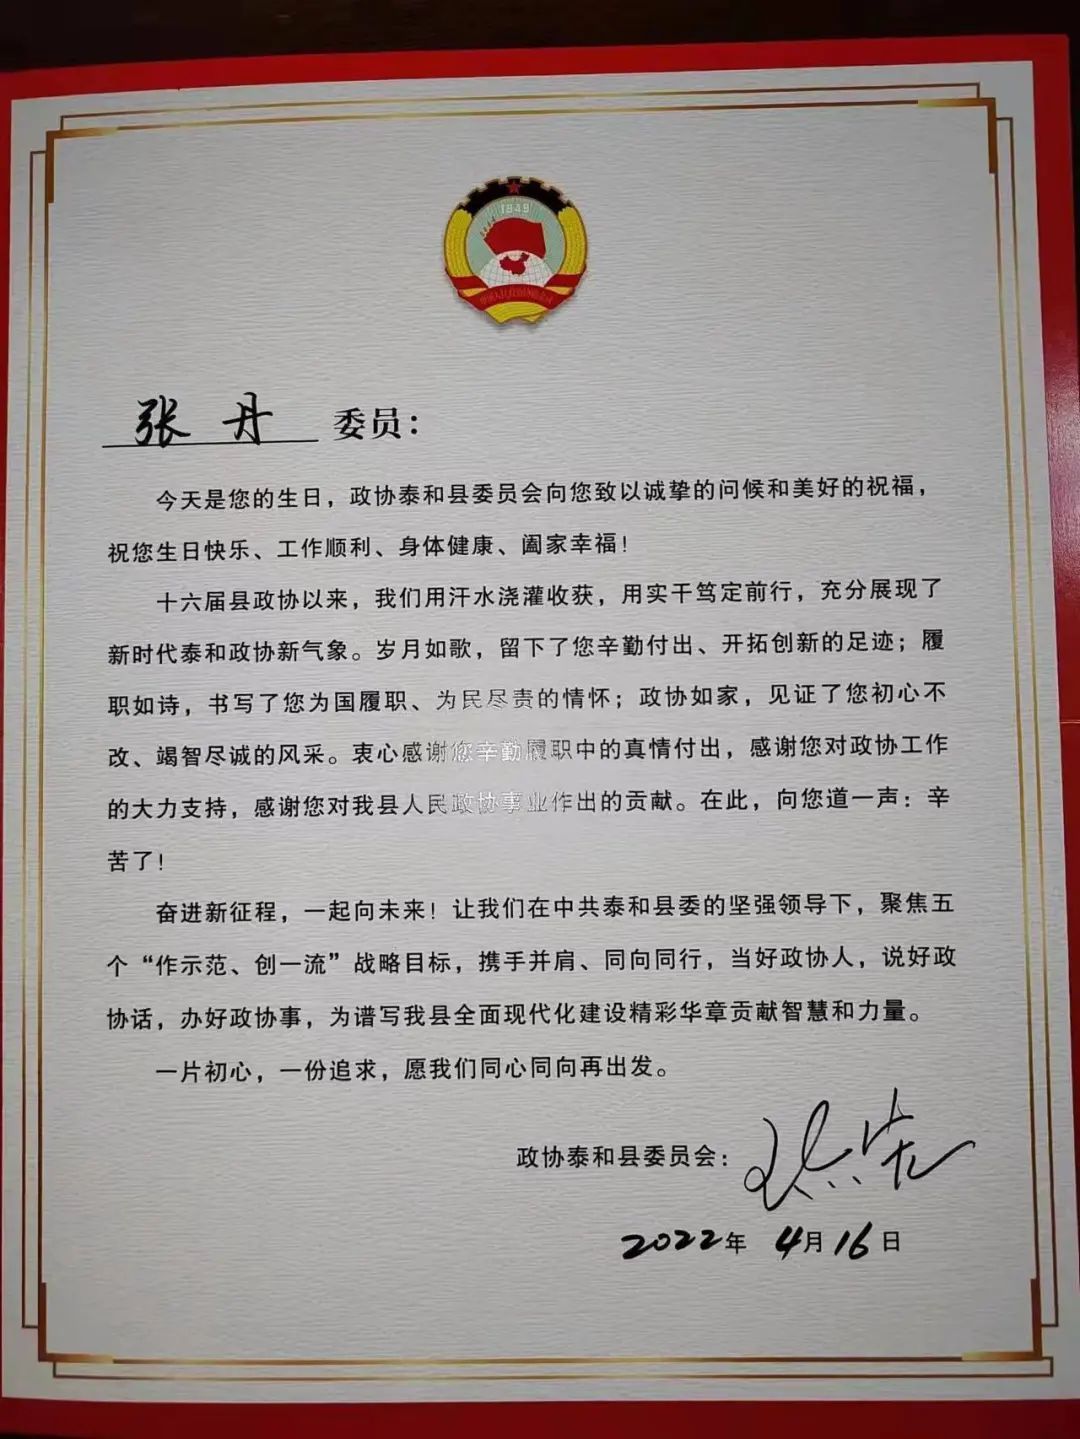 1949
张丹 委员：
今天是您的生日，政协泰和县委员会向您致以诚挚的问候和美好的祝福，
祝您生日快乐、工作顺利、身体健康、阖家幸福！
十六届县政协以来，我们用汗水浇灌收获，用实干笃定前行，充分展现了
新时代泰和政协新气象。岁月如歌，留下了您辛勤付出、开拓创新的足迹；履
职如诗，书写了您为国履职、为民尽责的情怀；政协如家，见证了您初心不
改、竭智尽诚的风采。衷心感谢您辛勤履职中的真情付出，感谢您对政协工作
的大力支持，感谢您对我县人民政协事业作出的贡献。在此，向您道一声：辛
苦了！
奋进新征程，一起向未来！让我们在中共泰和县委的坚强领导下，聚焦五
个“作示范、创一流”战略目标，携手并肩、同向同行，当好政协人，说好政
协话，办好政协事，为谱写我县全面现代化建设精彩华章贡献智慧和力量。
一片初心，一份追求，愿我们同心同向再出发。
政协泰和县委员会：
2022年 4月16日